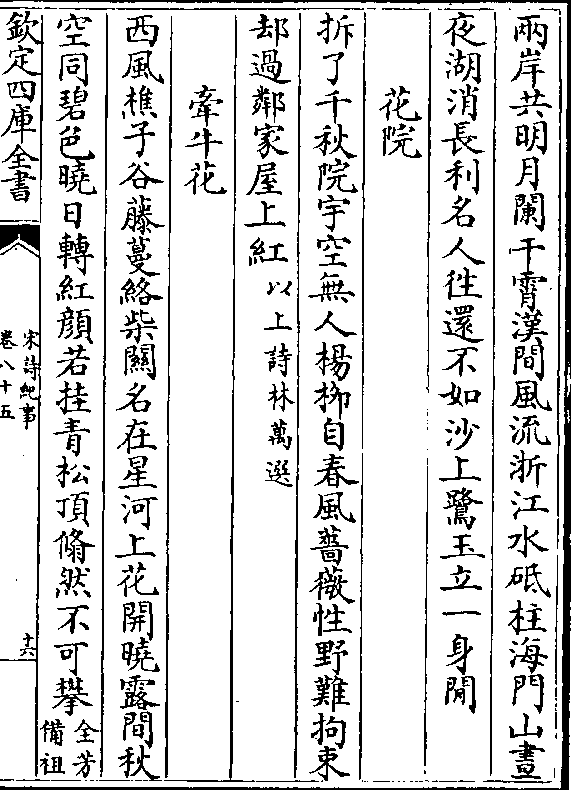 兩岸共明月闌干霄漢間風流浙江水砥柱海門山晝
夜湖消長利名人徃還不如沙上鷺玉立一身閒
花院
拆了千秋院宇空無人楊柳自春風薔薇性野難拘束
却過鄰家屋上紅以上詩林萬選
牽牛花
西風樵子谷藤蔓絡柴關名在星河上花開曉露間秋
空同碧色曉日轉紅顔若挂青松頂翛然不可攀全芳
備祖
欽定四庫全書
宋詩紀事
卷八十五
十六